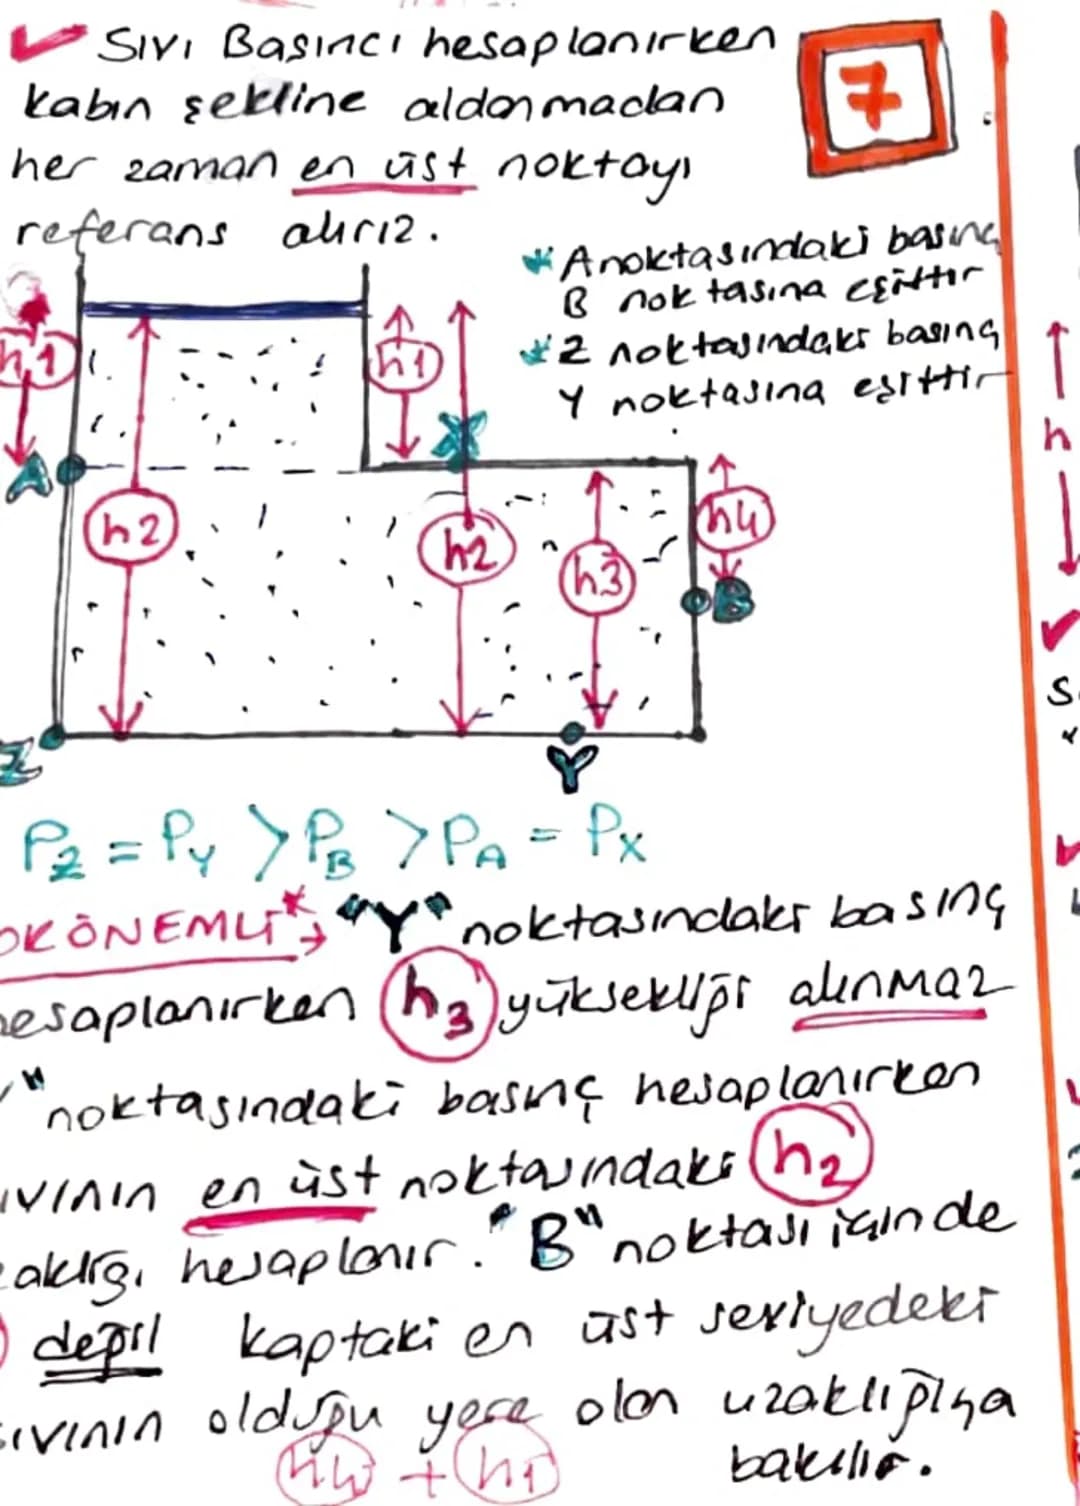 Sıvı Basıncı hesaplanırken
kabın şekline aldanmadan
her zaman en üst noktayı
referans alırız.
7
* A noktasındaki basınç
B noktasına eşittir
* Z noktasındaki basınç
Y noktasına eşittir
h1
h1
X
A
h2
h2
h3
h4
B
h
Z
Y
PZ = PY > PB > PA = PX
OK ÖNEMLİ* → "Y" noktasındaki basınç
hesaplanırken h3 yüksekliği alınmaz
" noktasındaki basınç hesaplanırken
ıvının en üst noktasındaki h2
zaklığı hesaplanır. "B" noktası içinde
değil kaptaki en üst seviyedeki
sıvının olduğu yere olan uzaklığına
h4 + h1 bakılır.